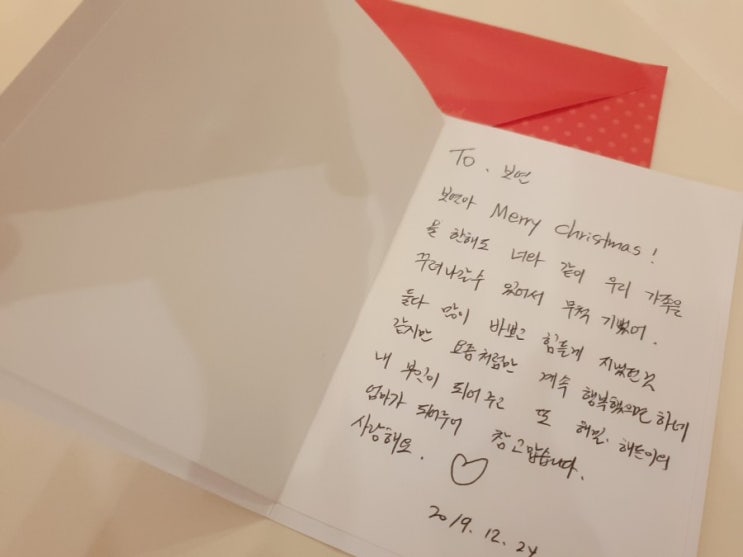 To. 보연
보연아 Merry Christmas!
올 한해도 너와 같이 우리 가족을
꾸려나갈수 있어서 무척 기뻤어.
둘다 많이 바쁘고 힘들게 지냈던것
같지만 요즘처럼만 계속 행복했으면 하네
내 부인이 되어주고 또 해밀, 해든이의
엄마가 되어주어 참 고맙습니다.
사랑해요. ♡
2019. 12. 24